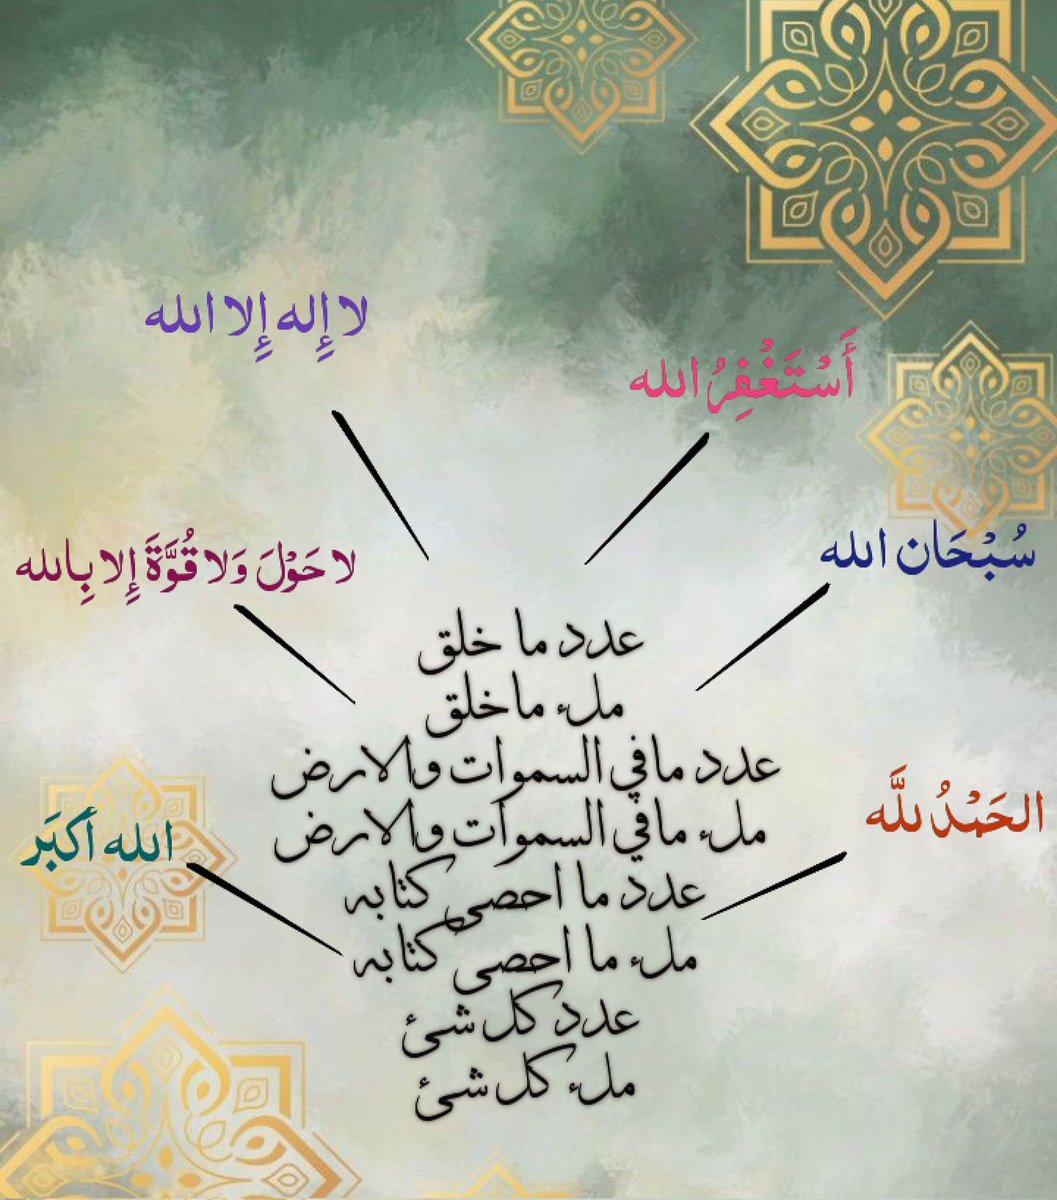 لا إِله إِلا الله
أَسْتَغْفِرُ الله
سُبْحَان الله
لا حَوْلَ وَلا قُوَّةَ إِلا بِالله
عدد ما خلق
ملء ماخلق
عدد مافي السموات والارض
ملء مافي السموات والارض
الحَمْدُ للَّه
الله أَكبَر
عدد ما احصى كتابه
ملء ما احصى كتابه
عدد كل شئ
ملء كل شئ